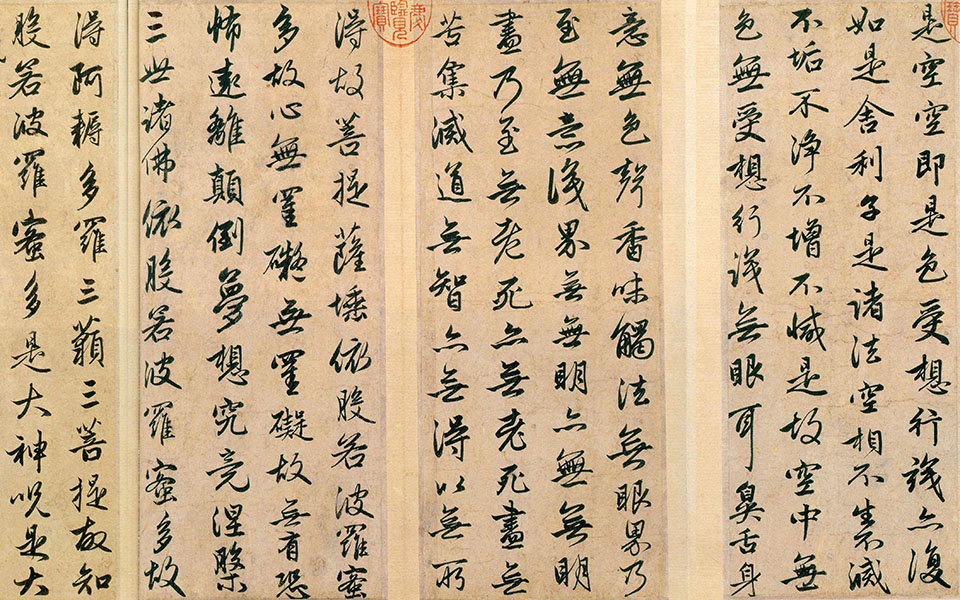 是空空即是色受想行識亦復
如是舍利子是諸法空相不生不滅
不垢不淨不增不減是故空中無
色無受想行識無眼耳鼻舌身
意無色聲香味觸法無眼界乃
至無意識界無無明亦無無明
盡乃至無老死亦無老死盡無
苦集滅道無智亦無得以無所
得故菩提薩埵依般若波羅蜜
多故心無罣礙無罣礙故無有恐
怖遠離顛倒夢想究竟涅槃
三世諸佛依般若波羅蜜多故
得阿耨多羅三藐三菩提故知
般若波羅蜜多是大神呪是大